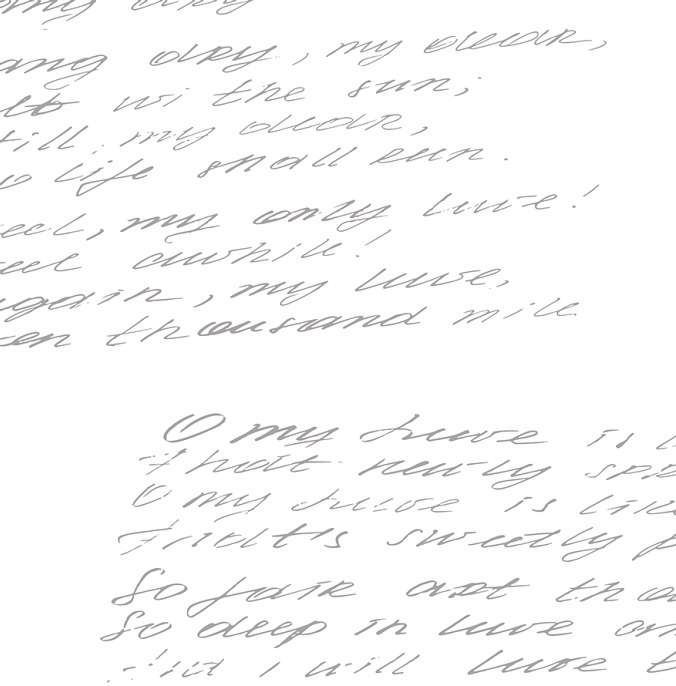 ang dry, my dear,
lt wi the sun;
till my dear,
o life shall run.
eel, my only luve!
eel awhile!
again, my luve,
ten thousand mile
O my Luve is l
That newly spr
O my Luve is like
That's sweetly p
So fair art tho
So deep in luve am
I will luve t